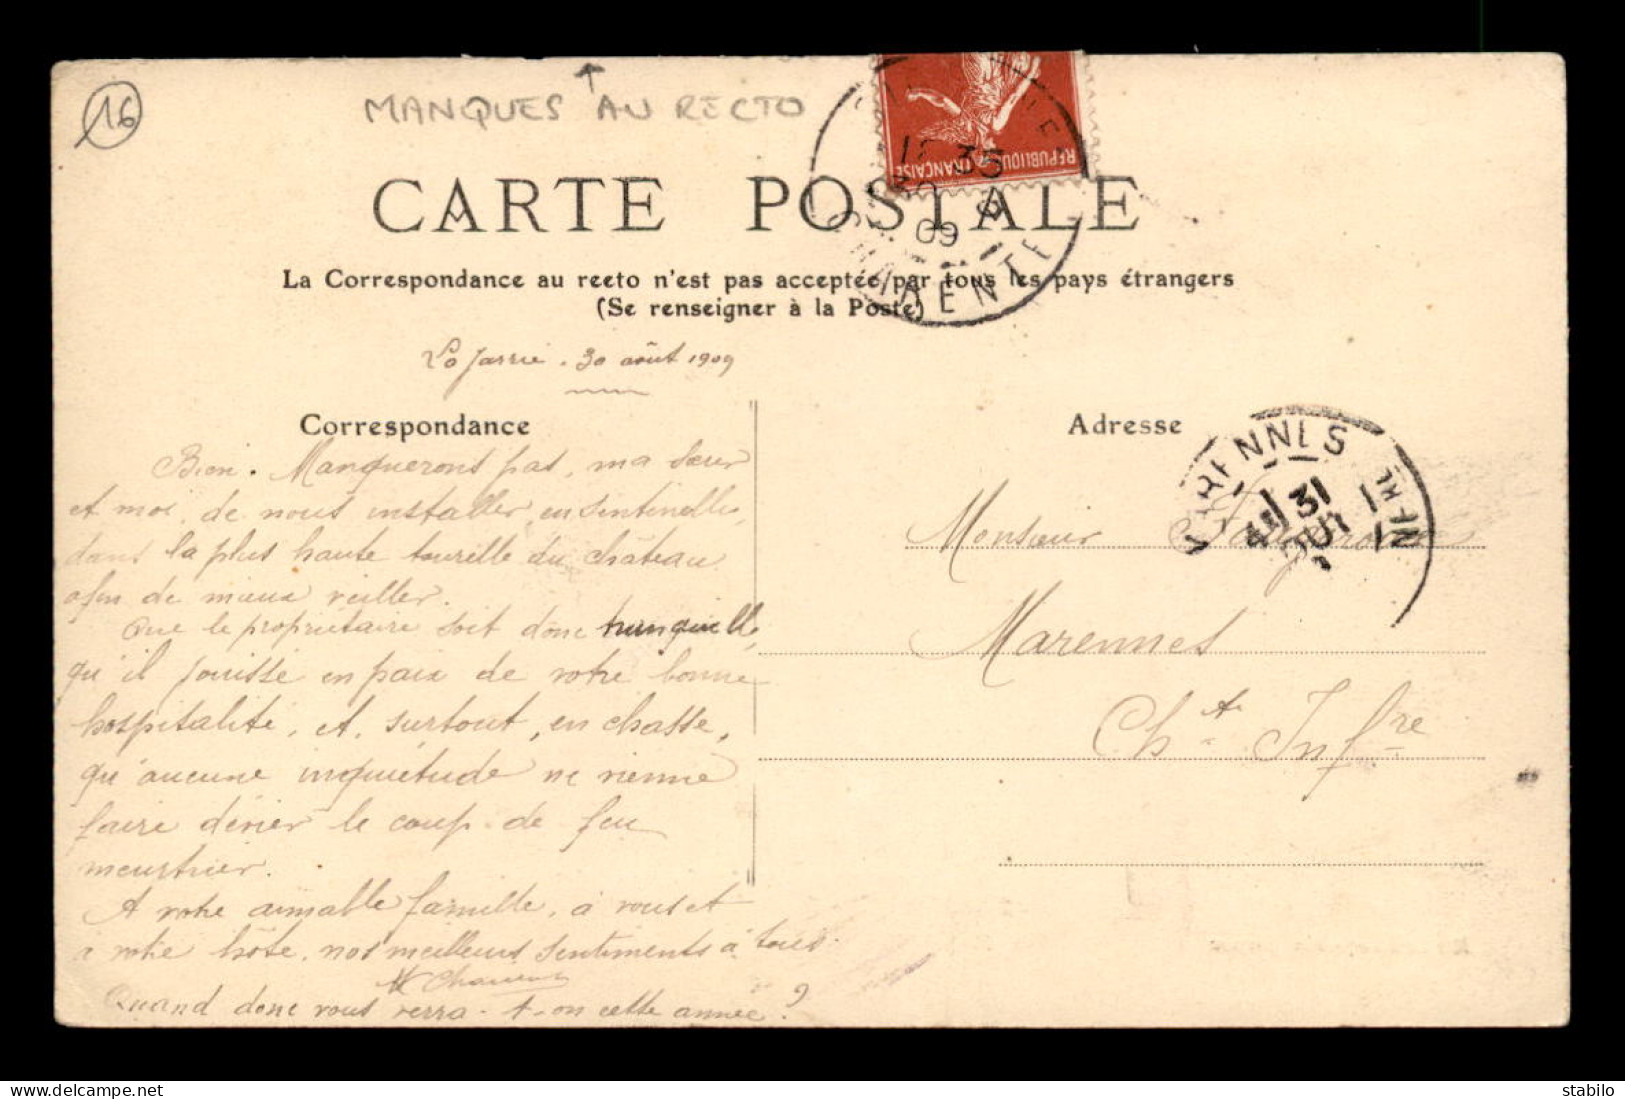 16
MANQUES AU RECTO
RÉPUBLIQUE FRANÇAISE
CARTE POSTALE
09
CHARENTE
La Correspondance au recto n'est pas acceptée par tous les pays étrangers
(Se renseigner à la Poste)
La Jarrie. 30 août 1909
Correspondance
Adresse
MARENNES
31
Bien. Manquerons pas, ma sœur
et moi, de nous installer, en sentinelle,
dans la plus haute tourelle du château
afin de mieux veiller.
Que le propriétaire soit donc tranquille,
qu'il jouisse en paix de votre bonne
hospitalité, et, surtout, en chasse,
qu'aucune inquiétude ne vienne
faire dévier le coup de feu
meurtrier.
A votre aimable famille, à vous et
à votre hôte, nos meilleurs sentiments à tous.
Quand donc vous verra-t-on cette année?
Monsieur
Marennes
Chte Infre
stabilo